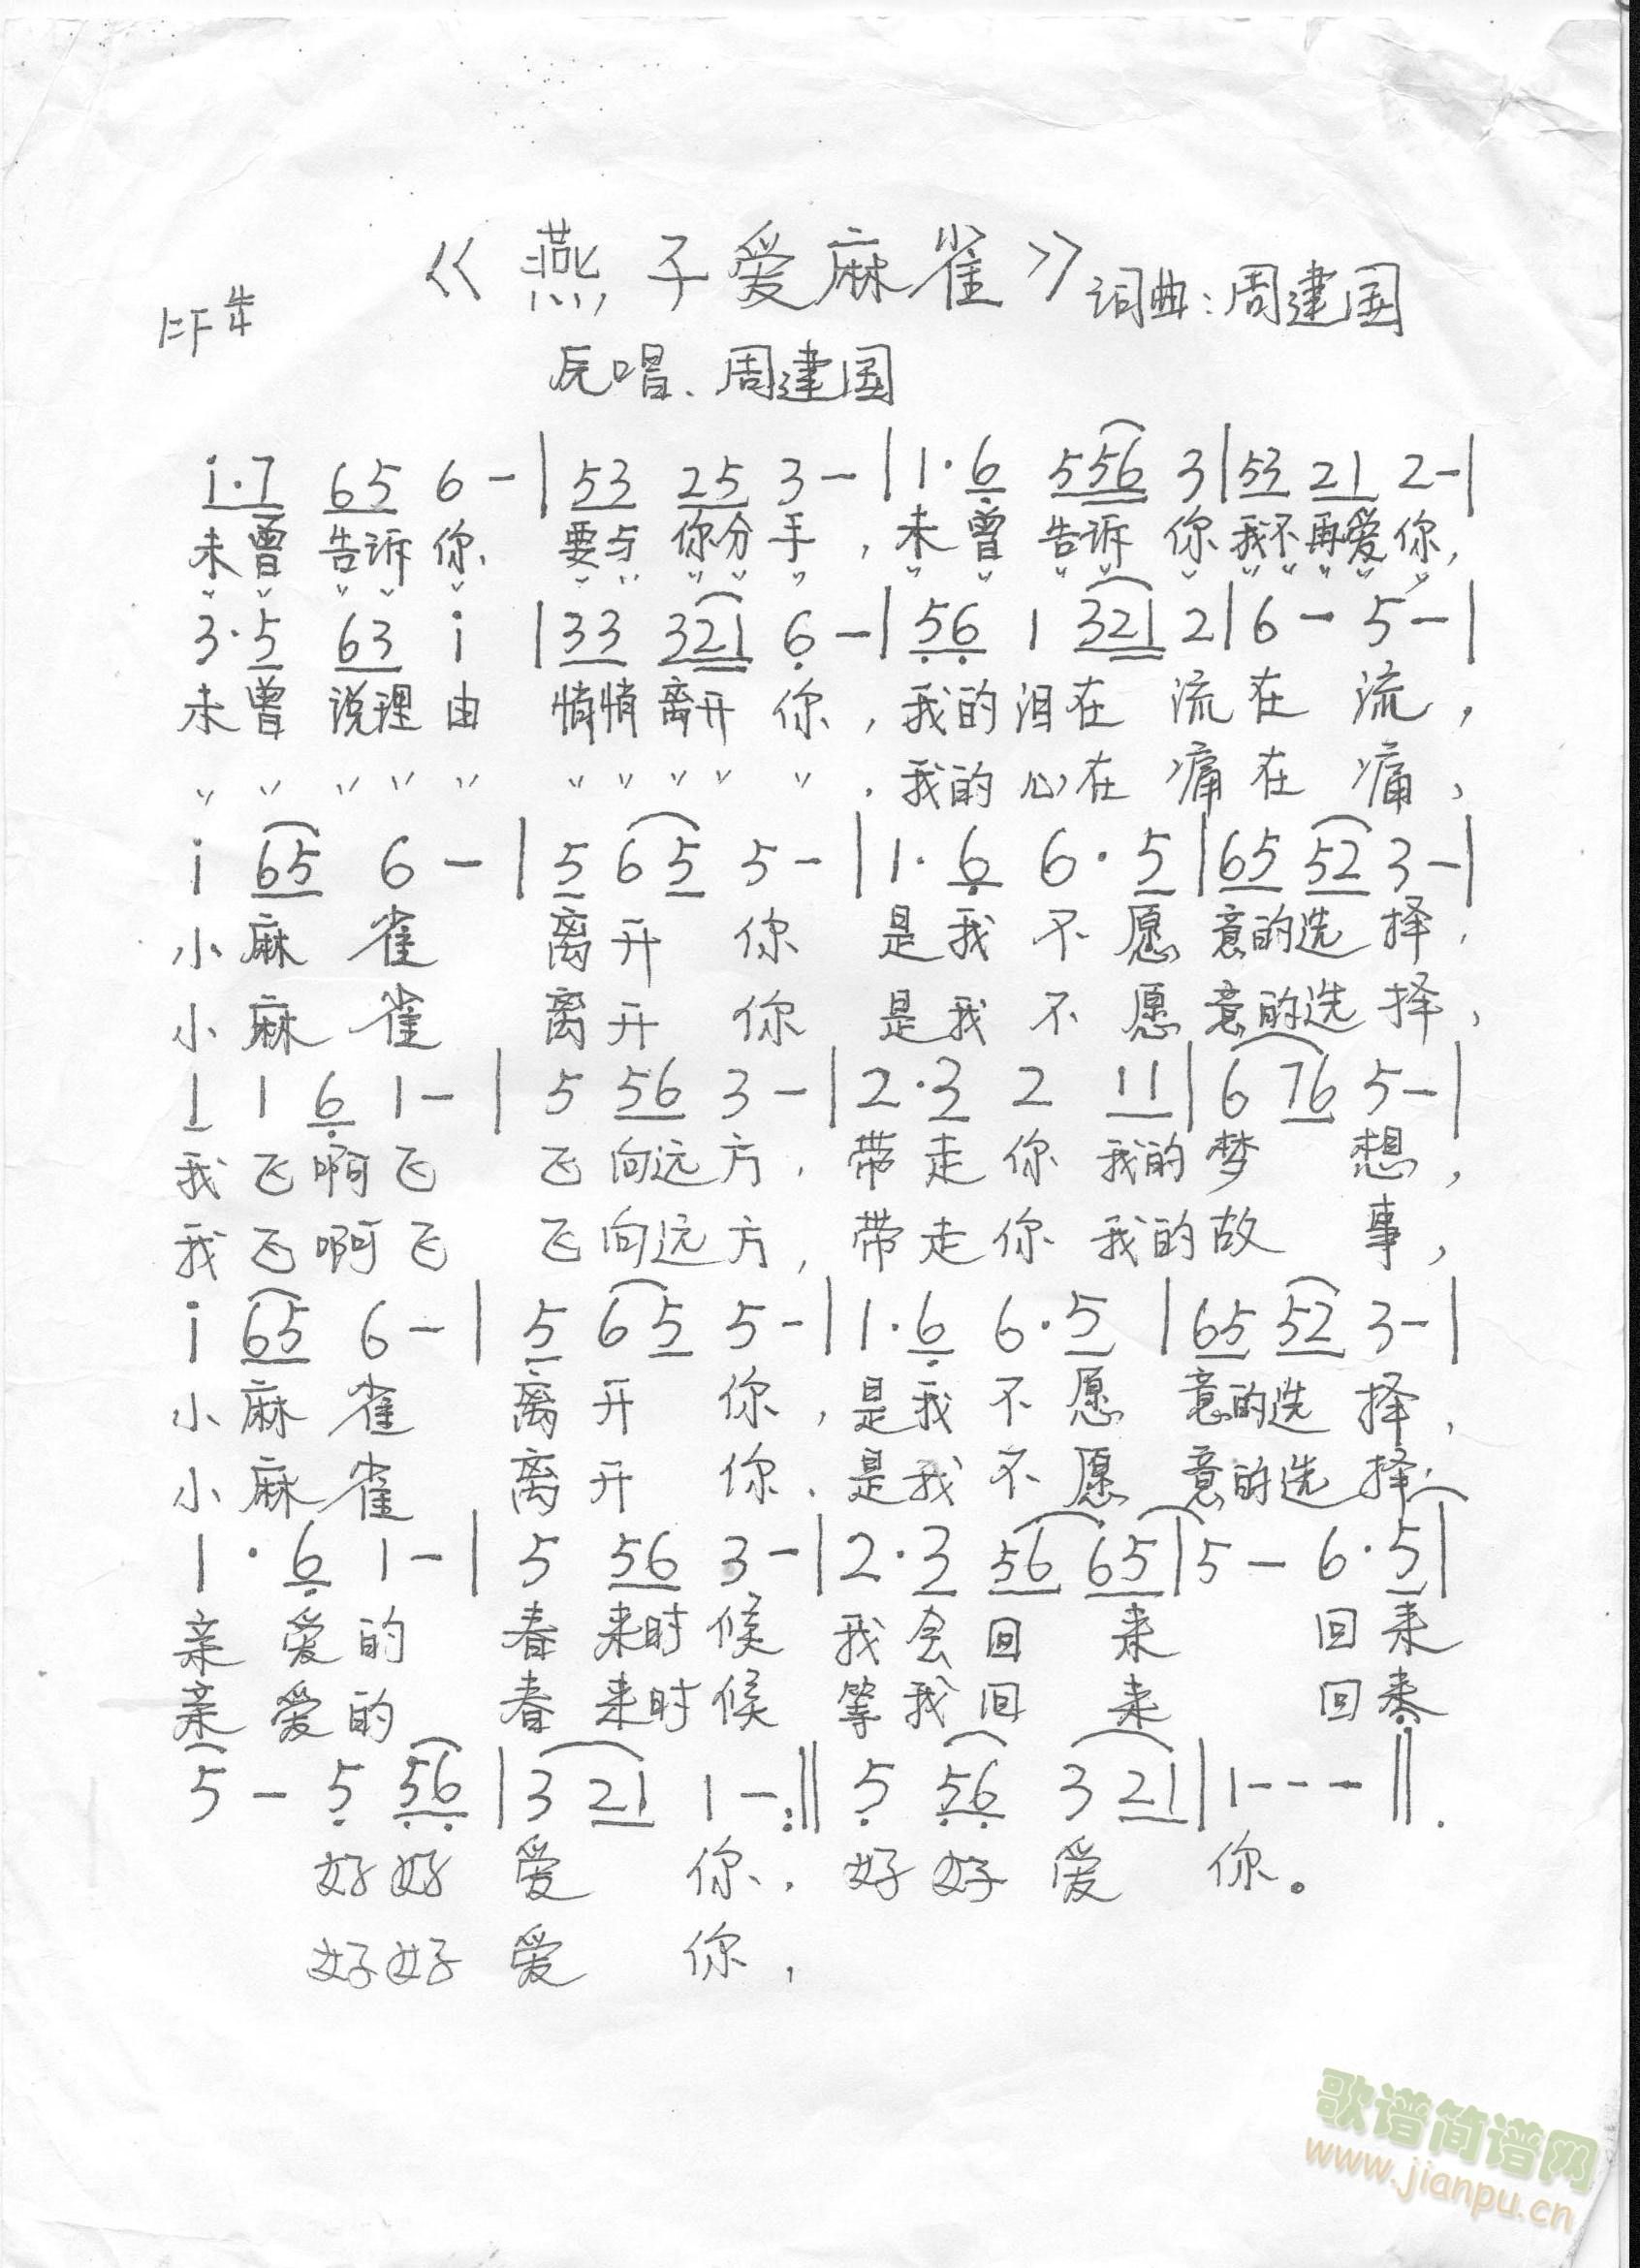 《燕子爱麻雀》
词曲:周建国
1=F 4/4
原唱、周建国
i·7 65 6 - | 53 25 3 - | 1·6 556 3 | 53 21 2 - |
未曾 告诉 你、 要与 你分 手，未曾 告诉 你 我不再爱你，
〃 〃 〃 〃 〃 〃 〃 〃 〃 〃 〃 〃 〃 〃 〃 〃 〃 〃 〃 〃
3·5 63 i | 33 321 6 - | 56 1 321 2 | 6 - 5 - |
未曾 说理 由 悄悄 离开 你，我的泪在 流 在 流，
〃 〃 〃 〃 〃 〃 〃 〃 〃 〃 . 我的 心在 痛 在 痛、
i 65 6 - | 5 65 5 - | 1·6 6·5 | 65 52 3 - |
小麻 雀 离开 你 是我 不愿 意的选 择，
小麻 雀 离开 你 是我 不愿 意的选 择，
1 1 6 1 - | 5 56 3 - | 2·3 2 11 | 6 76 5 - |
我飞啊飞 飞向远方，带走你 我的梦 想，
我飞啊飞 飞向远方，带走你 我的故 事，
i 65 6 - | 5 65 5 - | 1·6 6·5 | 65 52 3 - |
小麻 雀 离开 你，是我 不愿 意的选 择，
小麻 雀 离开 你、是我 不愿 意的选 择
1·6 1 - | 5 56 3 - | 2·3 56 65 | 5 - 6·5 |
亲爱的 春来时候 我会回 来 回来
亲爱的 春来时候 等我回 来 回来
5 - 5 56 | 3 21 1 - :‖ 5 56 3 21 | 1 - - - ‖.
好好 爱 你，好好 爱 你。
好好 爱 你，
歌谱简谱网
www.jianpu.cn